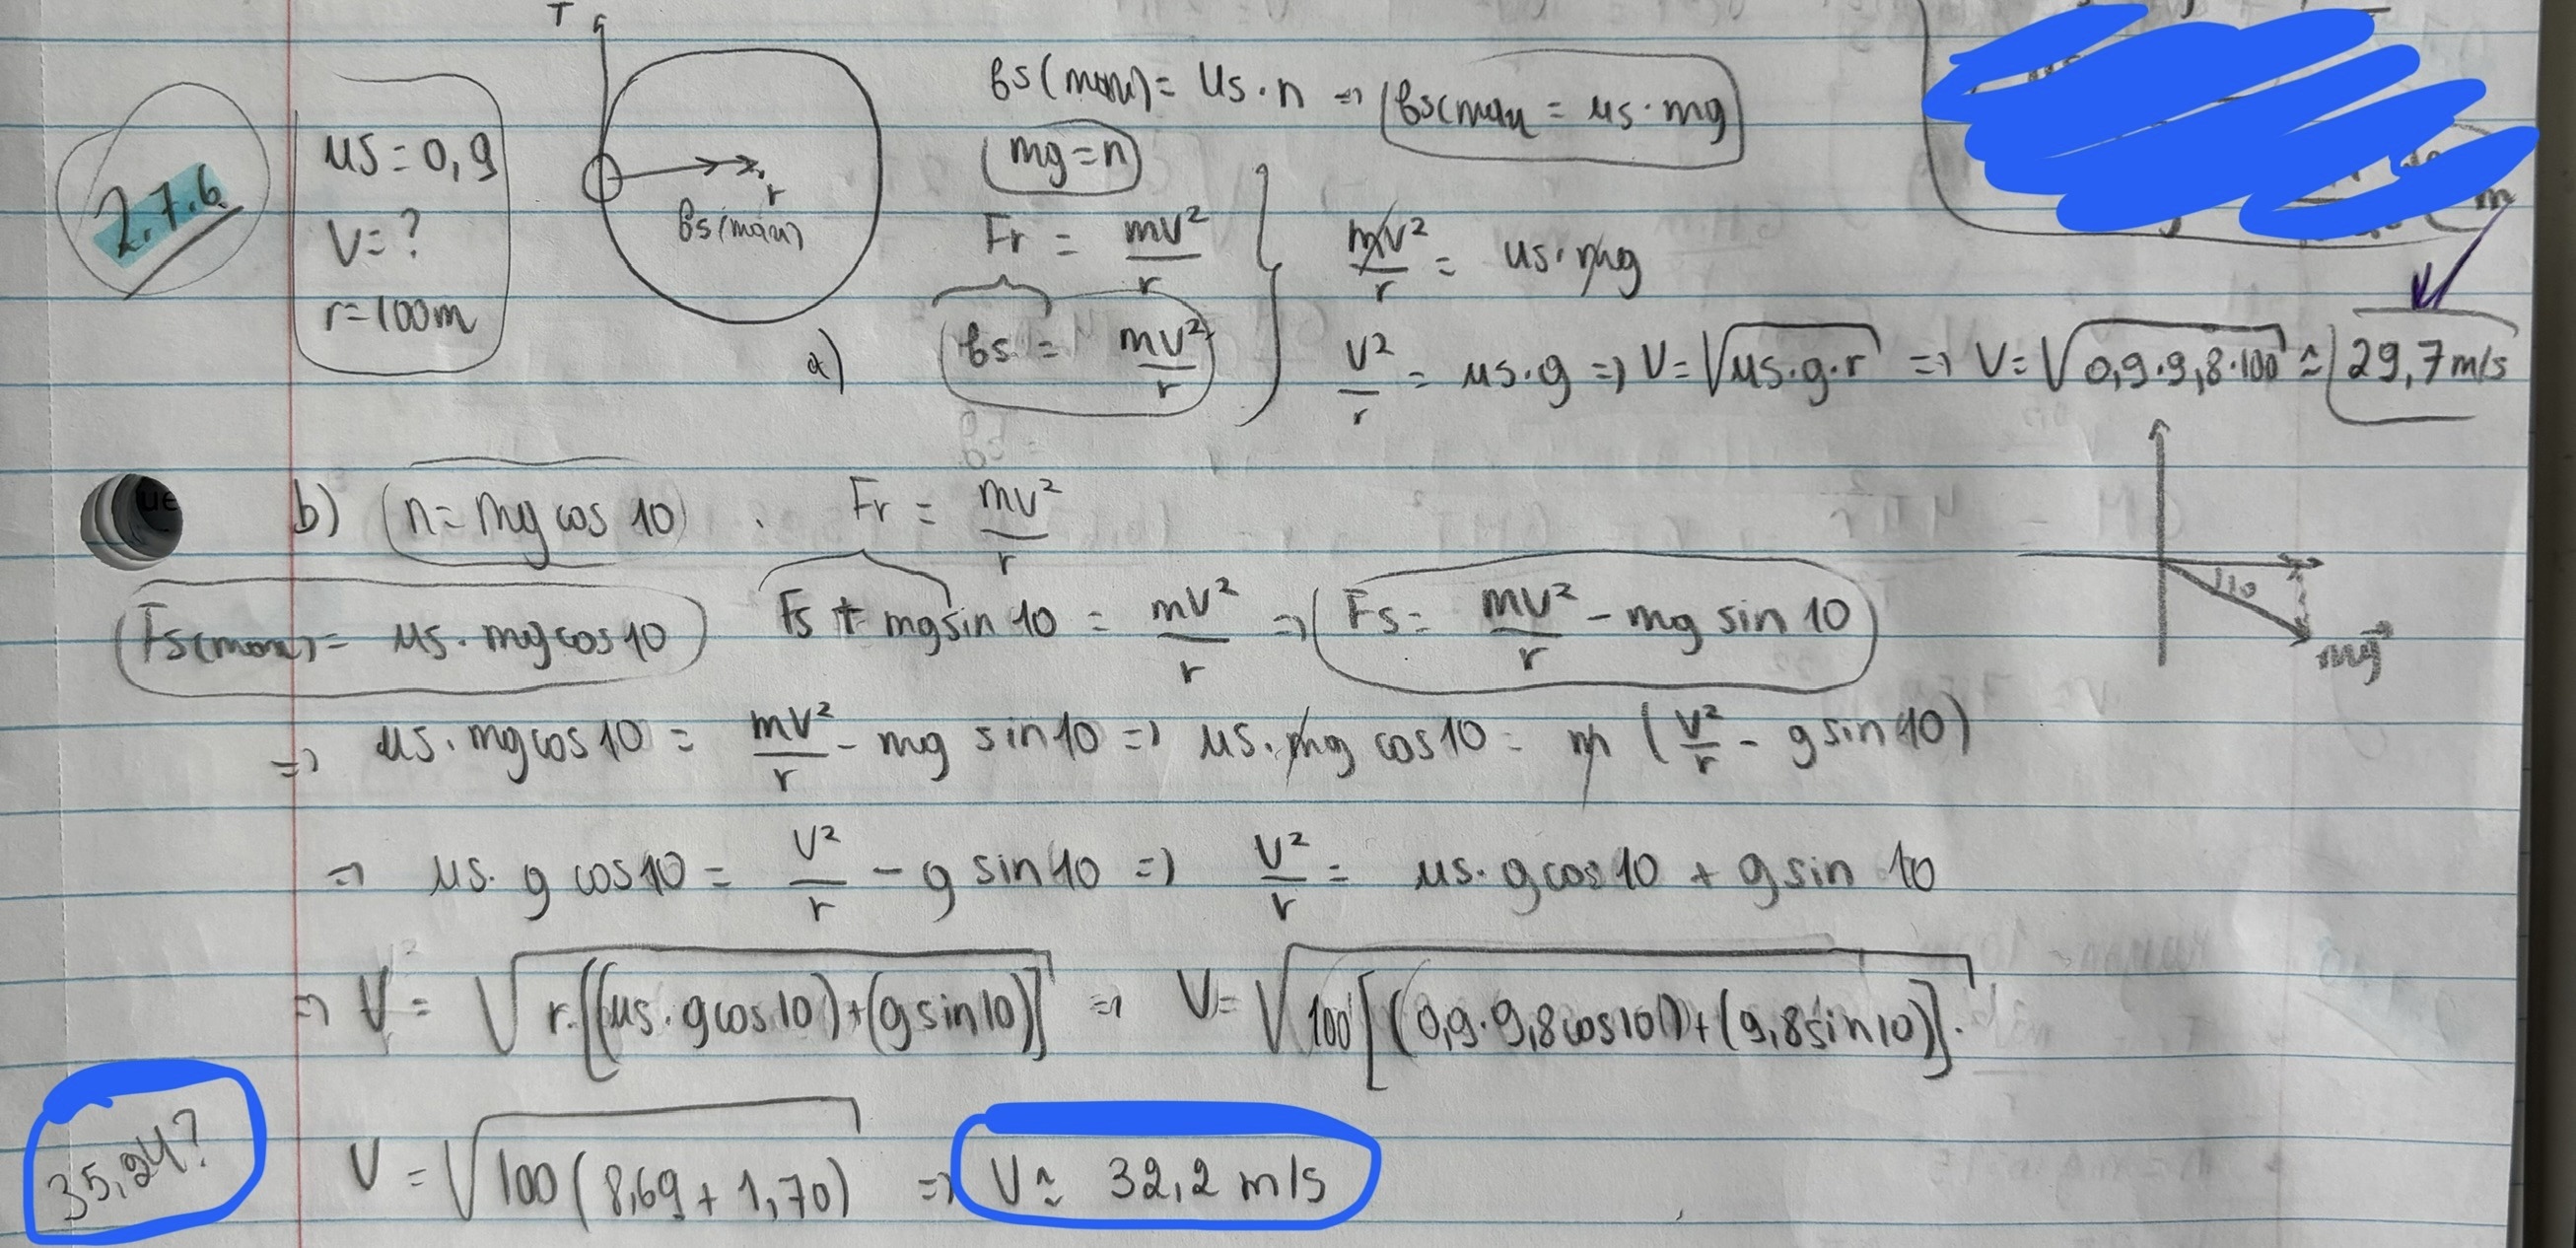 2.7.6
μs = 0,9
V = ?
r = 100m
r
fs(max)
fs(max) = μs · n => fs(max = μs · mg
mg = n
Fr = mv²/r
mv²/r = μs · mg
a) fs = mv²/r
v²/r = μs · g => V = √μs · g · r => V = √0,9 · 9,8 · 100 ≈ 29,7 m/s
b) n = mg cos 10 . Fr = mv²/r
Fs(max) = μs · mg cos 10
Fs + mg sin 10 = mv²/r => Fs = mv²/r - mg sin 10
10
mg
=> μs · mg cos 10 = mv²/r - mg sin 10 => μs · mg cos 10 = m (v²/r - g sin 10)
=> μs · g cos 10 = v²/r - g sin 10 => v²/r = μs · g cos 10 + g sin 10
=> V = √r · [(μs · g cos 10) + (g sin 10)] => V = √100 [(0,9 · 9,8 cos 10) + (9,8 sin 10)] .
35,24?
V = √100 (8,69 + 1,70) => V ≈ 32,2 m/s